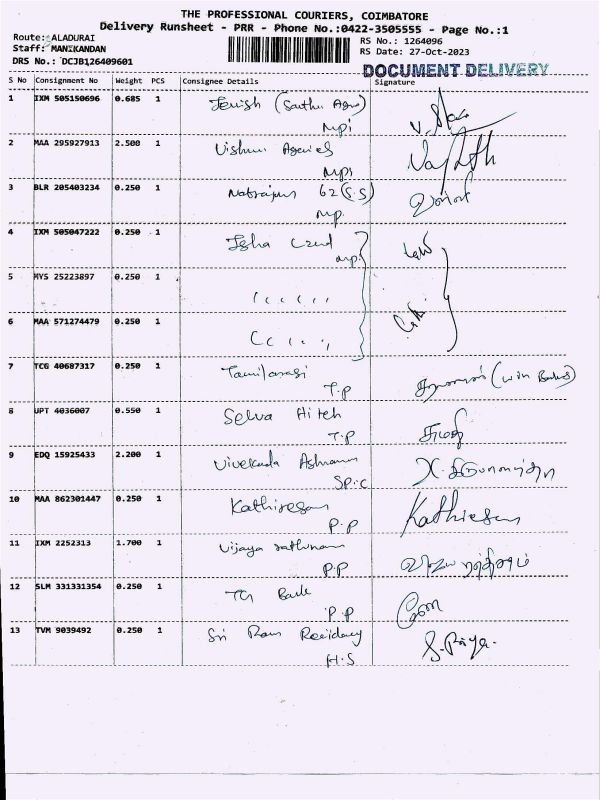 THE PROFESSIONAL COURIERS, COIMBATORE
Delivery Runsheet - PRR - Phone No.:0422-3505555 - Page No.:1
Route: ALADURAI
RS No.: 1264096
Staff: MANIKANDAN
RS Date: 27-Oct-2023
DRS No.: DCJB126409601
DOCUMENT DELIVERY
S No Consignment No Weight PCS Consignee Details Signature
1 IXM 505150696 0.685 1 Jenish
2 MAA 295927913 2.500 1 Vishnu Agencies
3 BLR 205403234 0.250 1 Natrajan 62 (S.S)
mp.
4 IXM 505047222 0.250 1 Isha
5 MYS 25223897 0.250 1
6 MAA 571274479 0.250 1
7 TCG 40687317 0.250 1 Tamilarasi
T.P
8 UPT 4036007 0.550 1 Selva Hitech
T.P
9 EDQ 15925433 2.200 1 Vivekada
SP.C
10 MAA 862301447 0.250 1 Kathiresan Kathiresan
P.P
11 IXM 2252313 1.700 1 Vijaya rathinam
P.P
12 SLM 331331354 0.250 1
P.P
13 TVM 9039492 0.250 1 Sri Ram Residency S. Priya.
H.S